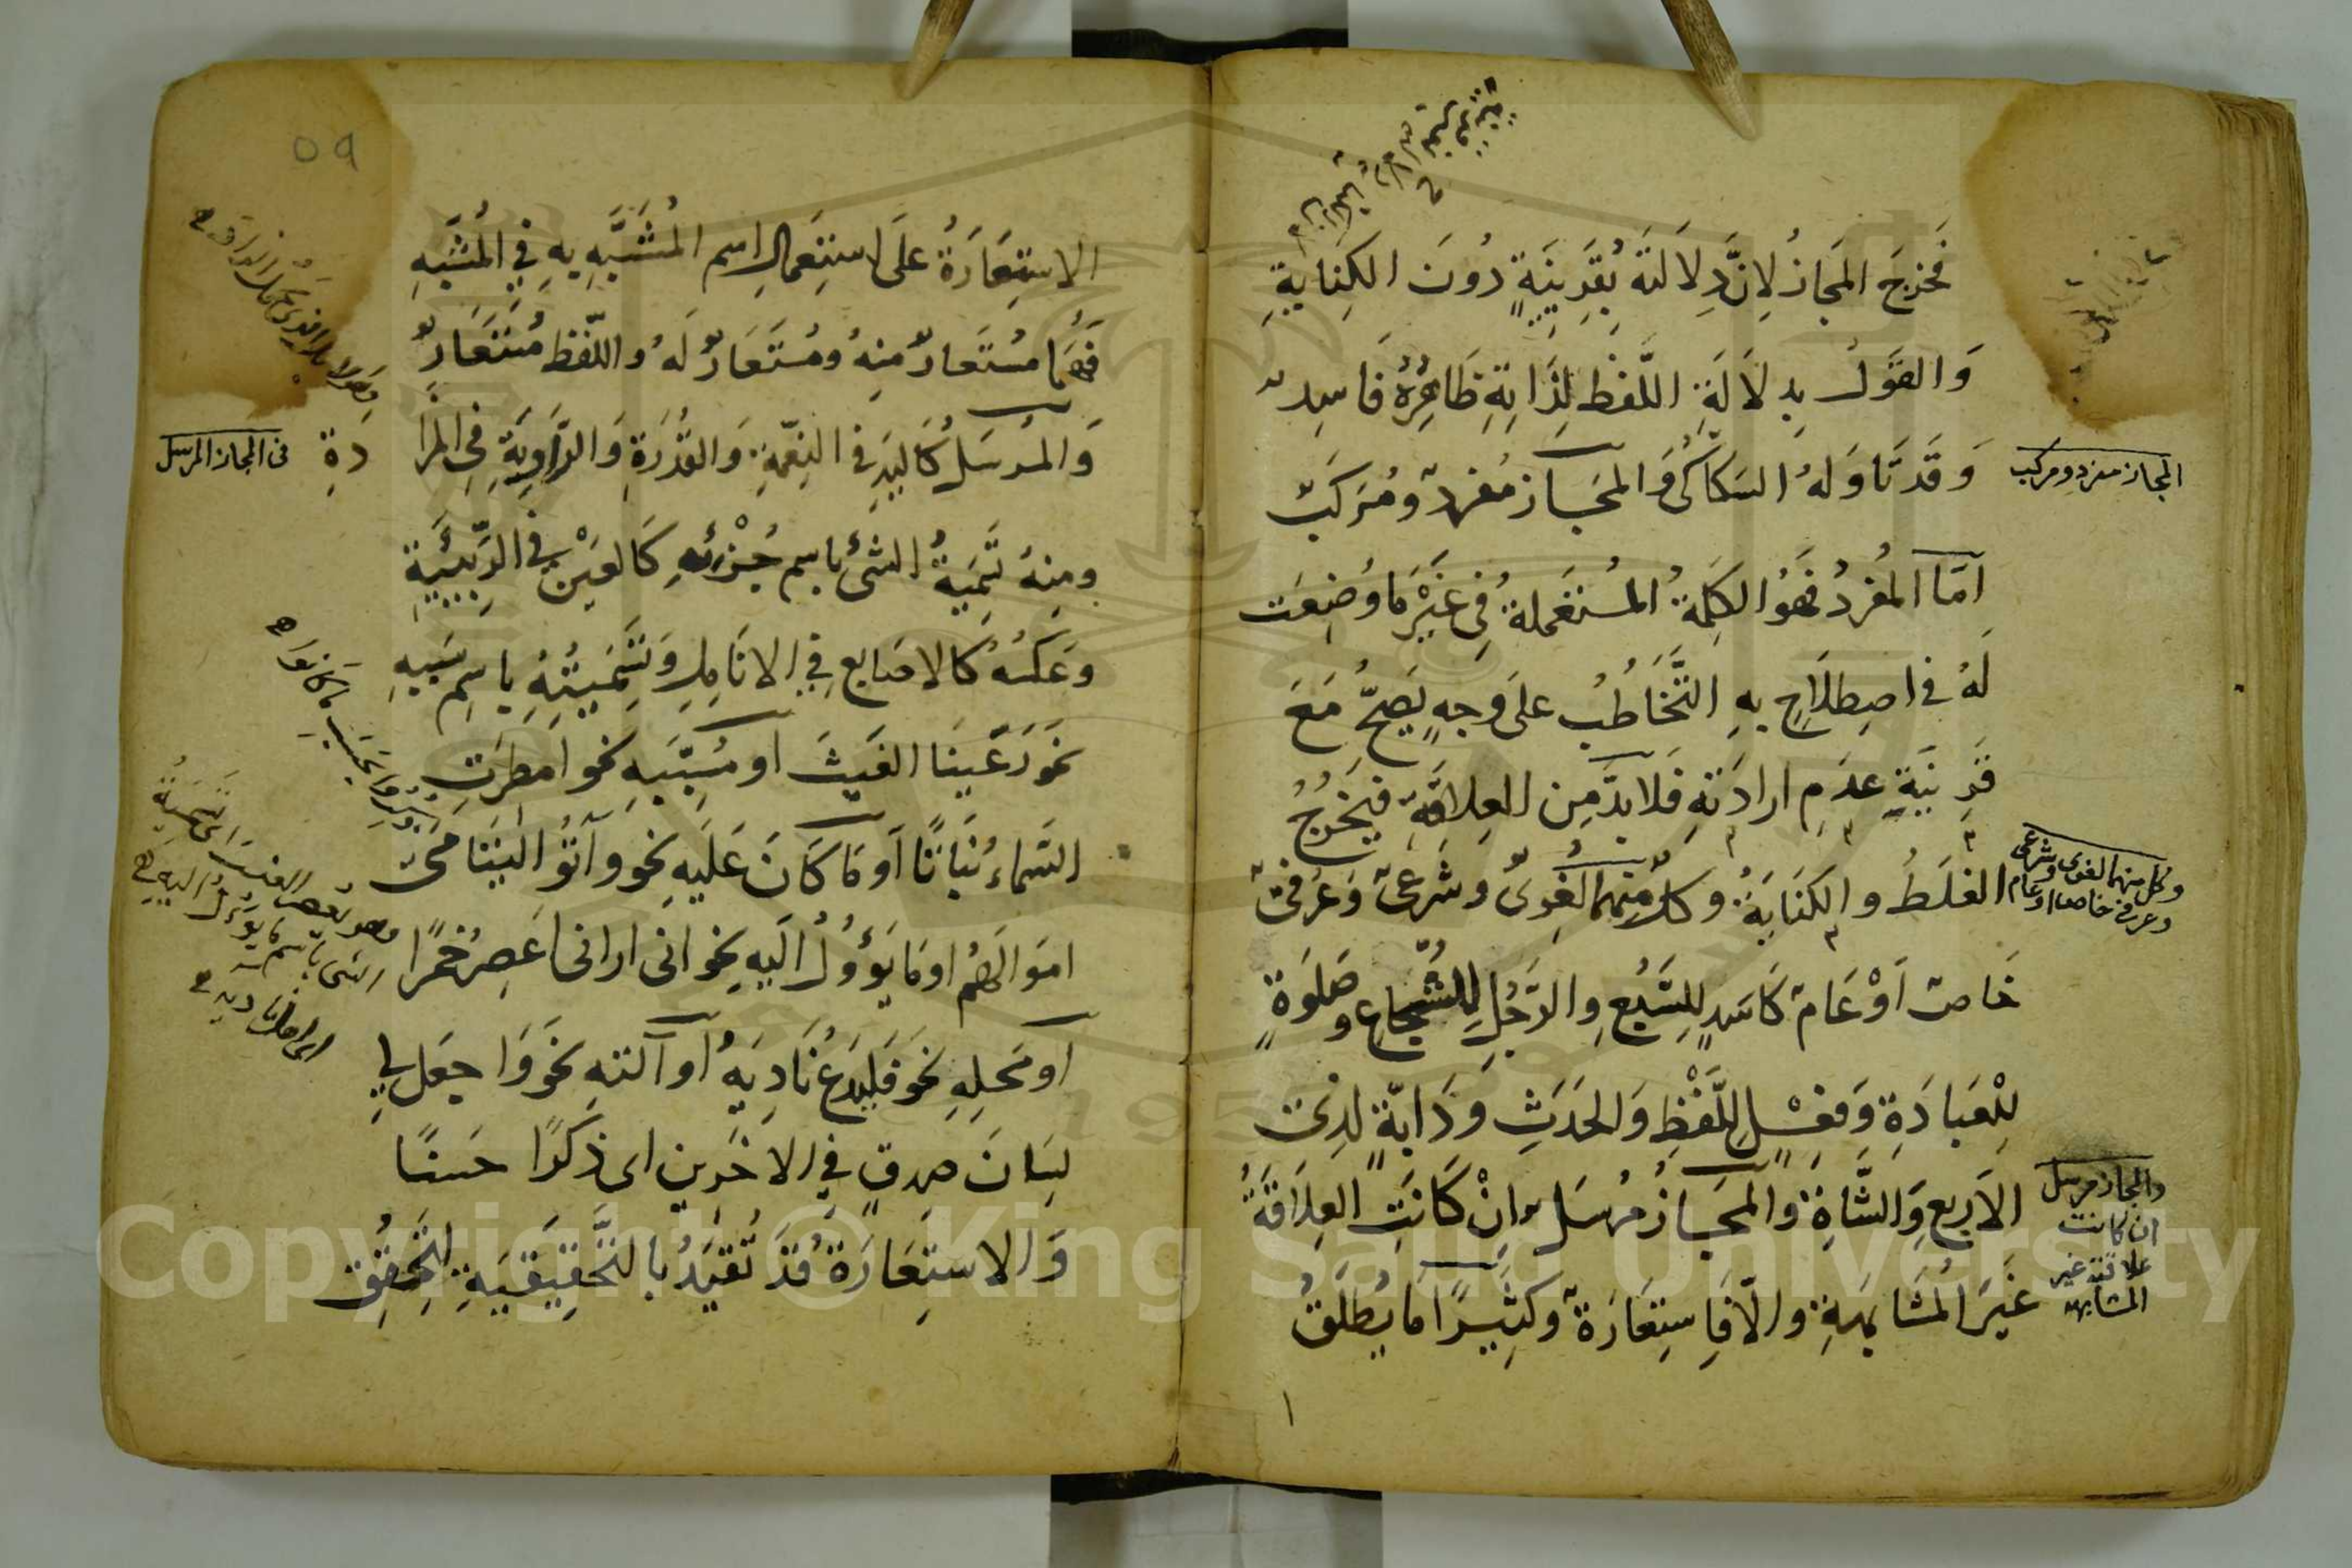 فَخَرَجَ المَجَازُ لِاَنَّ دِلَالَتَهُ بِقَرِينَةٍ دُونَ الكِنَايَةِ
وَالقَوْلُ بِدِلَالَةِ اللَّفْظِ لِذَاتِهِ ظَاهِرُهُ فَاسِدٌ
وَقَدْ تَاَوَّلَهُ السَكَّاكِىُّ وَالمَجَاز مُفردٌ ومُرَكَبٌ
المجاز مفرد ومركب
اَمَّا المُفردُ فَهُوَ الكَلِمَةُ المُسْتَعْمَلَةُ فِى غَيْرِ مَا وُضِعَت
لَهُ فى اصطِلَاحٍ بِهِ التَّخَاطُبُ عَلَى وَجهٍ يَصِحُّ مَعَ
قَرِينَةِ عَدَمِ ارادَتِهِ فَلابدَّ مِن العِلاقَةِ فَيَخْرُجُ
الغَلَطُ والكِنَايَةُ وكلٌّ مِنهما لُغَوِىٌّ وشَرعِىٌّ وَعُرْفِىٌّ
وكل منهما لغوى وشرعى
وعرفى خاص او عام
خَاصٌّ اَوْ عَامٌّ كَاَسَدٍ لِلسَّبُعِ والرَّجُلِ الشُّجَاعِ وصَلوةٍ
لِلْعِبَادَةِ وَفِعْلٍ لِلَّفْظِ وَالحَدَثِ وَدَابَّةٍ لِذِى
الاَربعِ وَالشَّاةِ والمَجَازُ مُرسَلٌ اِنْ كَانَتِ العِلَاقَةُ
والمجاز مرسل
ان كانت
علاقته غير
المشابهة
غَيرَ المُشَابَهَةِ والّا فَاسِتعَارَةٌ وكَثِيرًا مَا يُطْلَقُ
٥٩
الاستِعَارَةُ عَلَى استِعمَالِ اسم المُشَبَّهِ بِهِ فِى المُشَبَّهِ
فَهُمَا مُستَعارٌ مِنهُ ومُستَعَارٌ لَهُ واللَّفظ مُستَعَارٌ
وَالمُرسَلُ كَاليَدِ فى النِعْمَةِ وَالقُدْرَةِ وَالرَّاوِيَةِ فِى المَزَادَةِ
فى المجاز المرسل
ومِنهُ تَسْمِيَةُ الشئِ باسم جُزْئِهِ كَالعَيْنِ فِى الرَّبِيئَةِ
وعَكسُهُ كالاصَابعِ فِى الانَامِلِ وَتَسْمِيَتُهُ باسِمِ سَبَبِهِ
نَحوَ رَعَيْنَا الغَيثَ او مُسَبَّبِهِ نحو اَمطَرَتِ
السَّماءُ نَبَاتًا اَو مَا كَانَ عَلَيهِ نحو وآتُو اليَتَامَى
اموَالَهُم او مَا يَؤُولُ اِلَيهِ نحو انى ارانى اَعصِرُ خَمرًا
او مَحلِهِ نَحو فَليَدعُ نَادِيَهُ او آلتهِ نحو وَاجعَل لِى
لِسَانَ صِدقٍ فِى الاخَرِين اى ذِكرًا حَسنًا
وَالاستِعَارَةُ قَد تُقَيَّدُ بالتَّحقِيقِيَةِ لِتَحقُّقِ